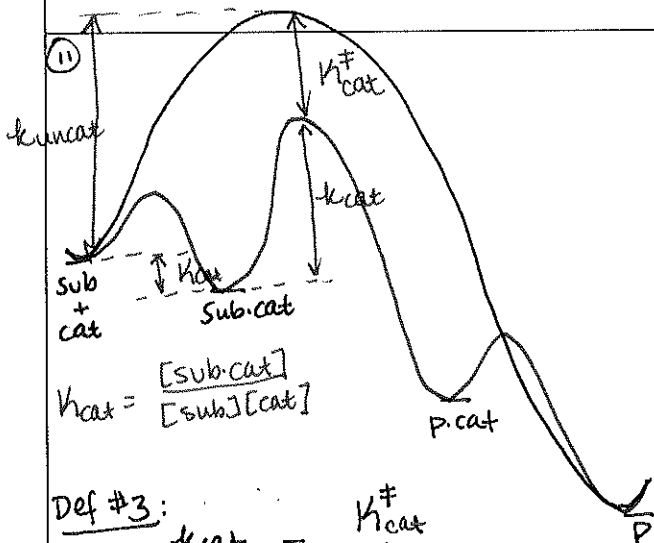 11
K‡cat
kuncat
kcat
Kcat
sub
+
cat
sub·cat
Kcat = [sub·cat]
[sub][cat]
p·cat
Def #3:
K‡cat
kcat =
P